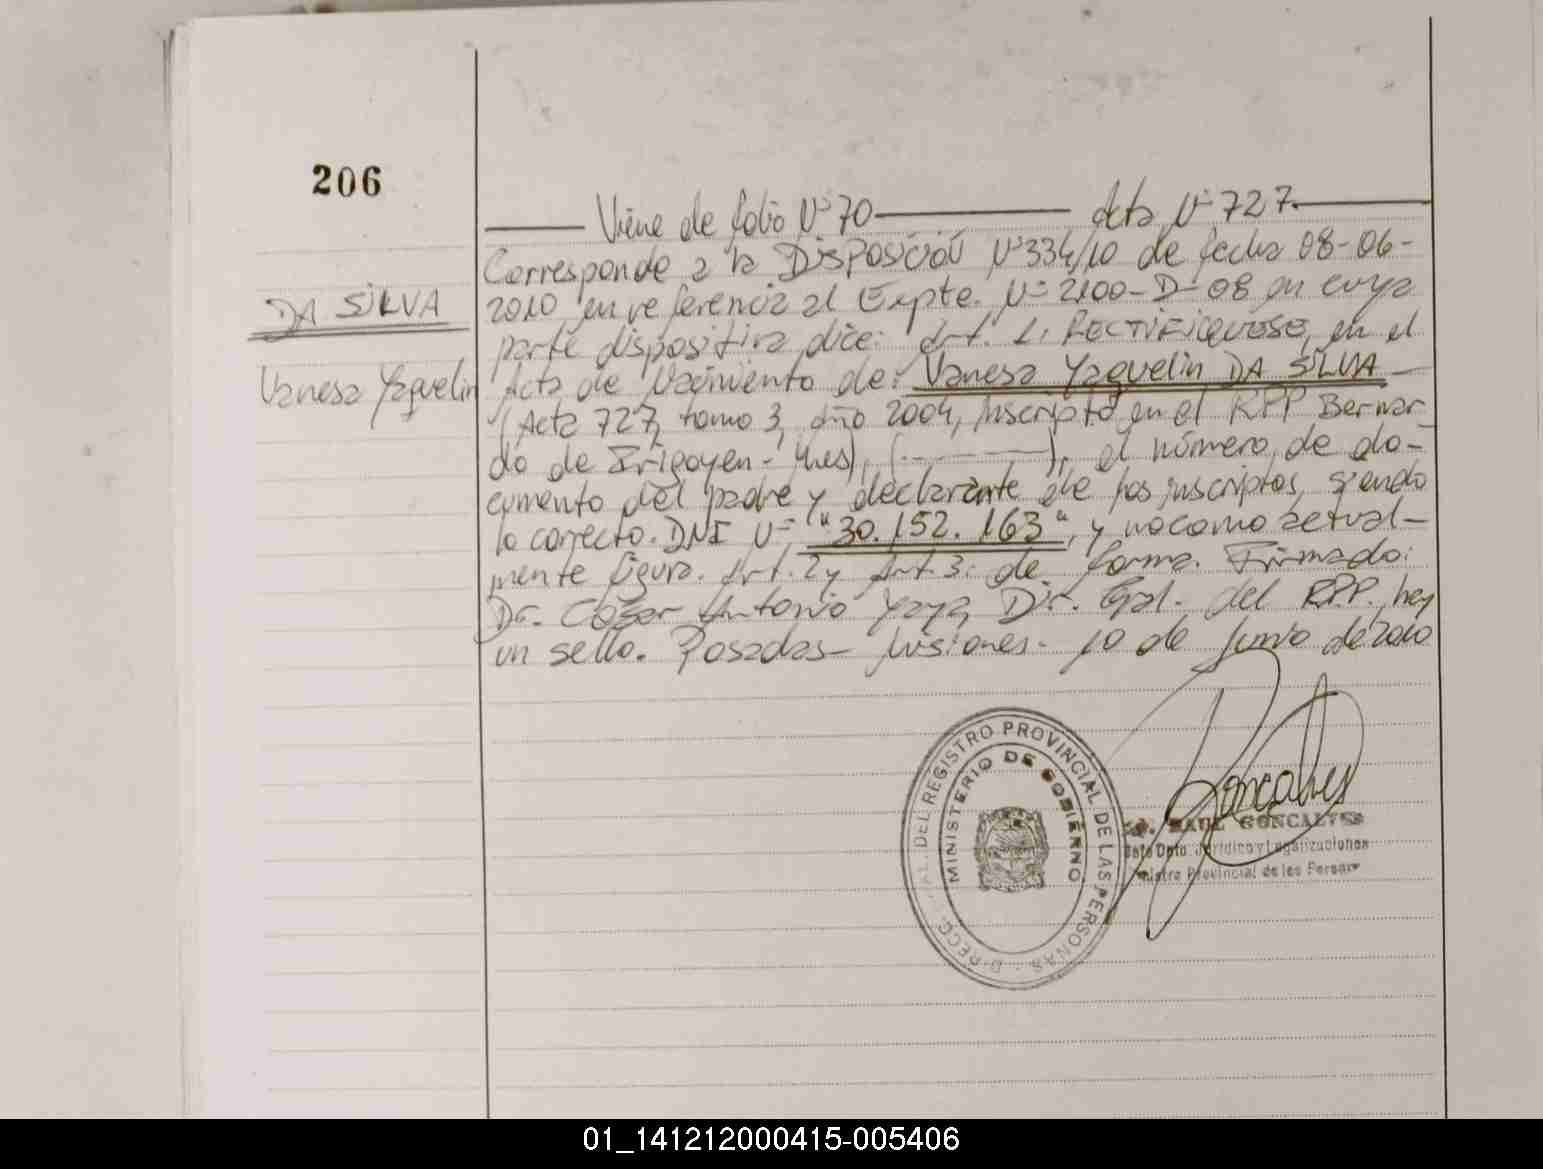 206
Viene de folio Nº 70 — Acta Nº 727.—
Corresponde a la DISPOSICIÓN Nº 334/10 de fecha 08-06-
DA SILVA
2010 en referencia al Expte. Nº 2100-D-08 en cuya
parte dispositiva dice: Art. 1: RECTIFIQUESE, en el
Vanesa Yaquelin
Acta de Nacimiento de: Vanesa Yaquelin DA SILVA —
(Acta 727, tomo 3, año 2004, Inscripto en el RPP Bernar
do de Irigoyen - Mnes), (— — —), el número de do-
cumento del padre y declarante de los inscriptos, siendo
lo correcto. DNI Nº "30.152.163", y no como actual-
mente figura. Art. 2 y Art. 3: de forma. Firmado:
Dr. César Antonio Yaya, Dir. Gral. del R.P.P. hay
un sello. Posadas - Misiones - 10 de Junio de 2010
DEL REGISTRO PROVINCIAL DE LAS PERSONAS - DIRECC.
MINISTERIO DE GOBIERNO
Goncalves
RAUL GONCALVES
Dpto. Jurídico y Legalizaciones
Provincial de las Personas
01_141212000415-005406